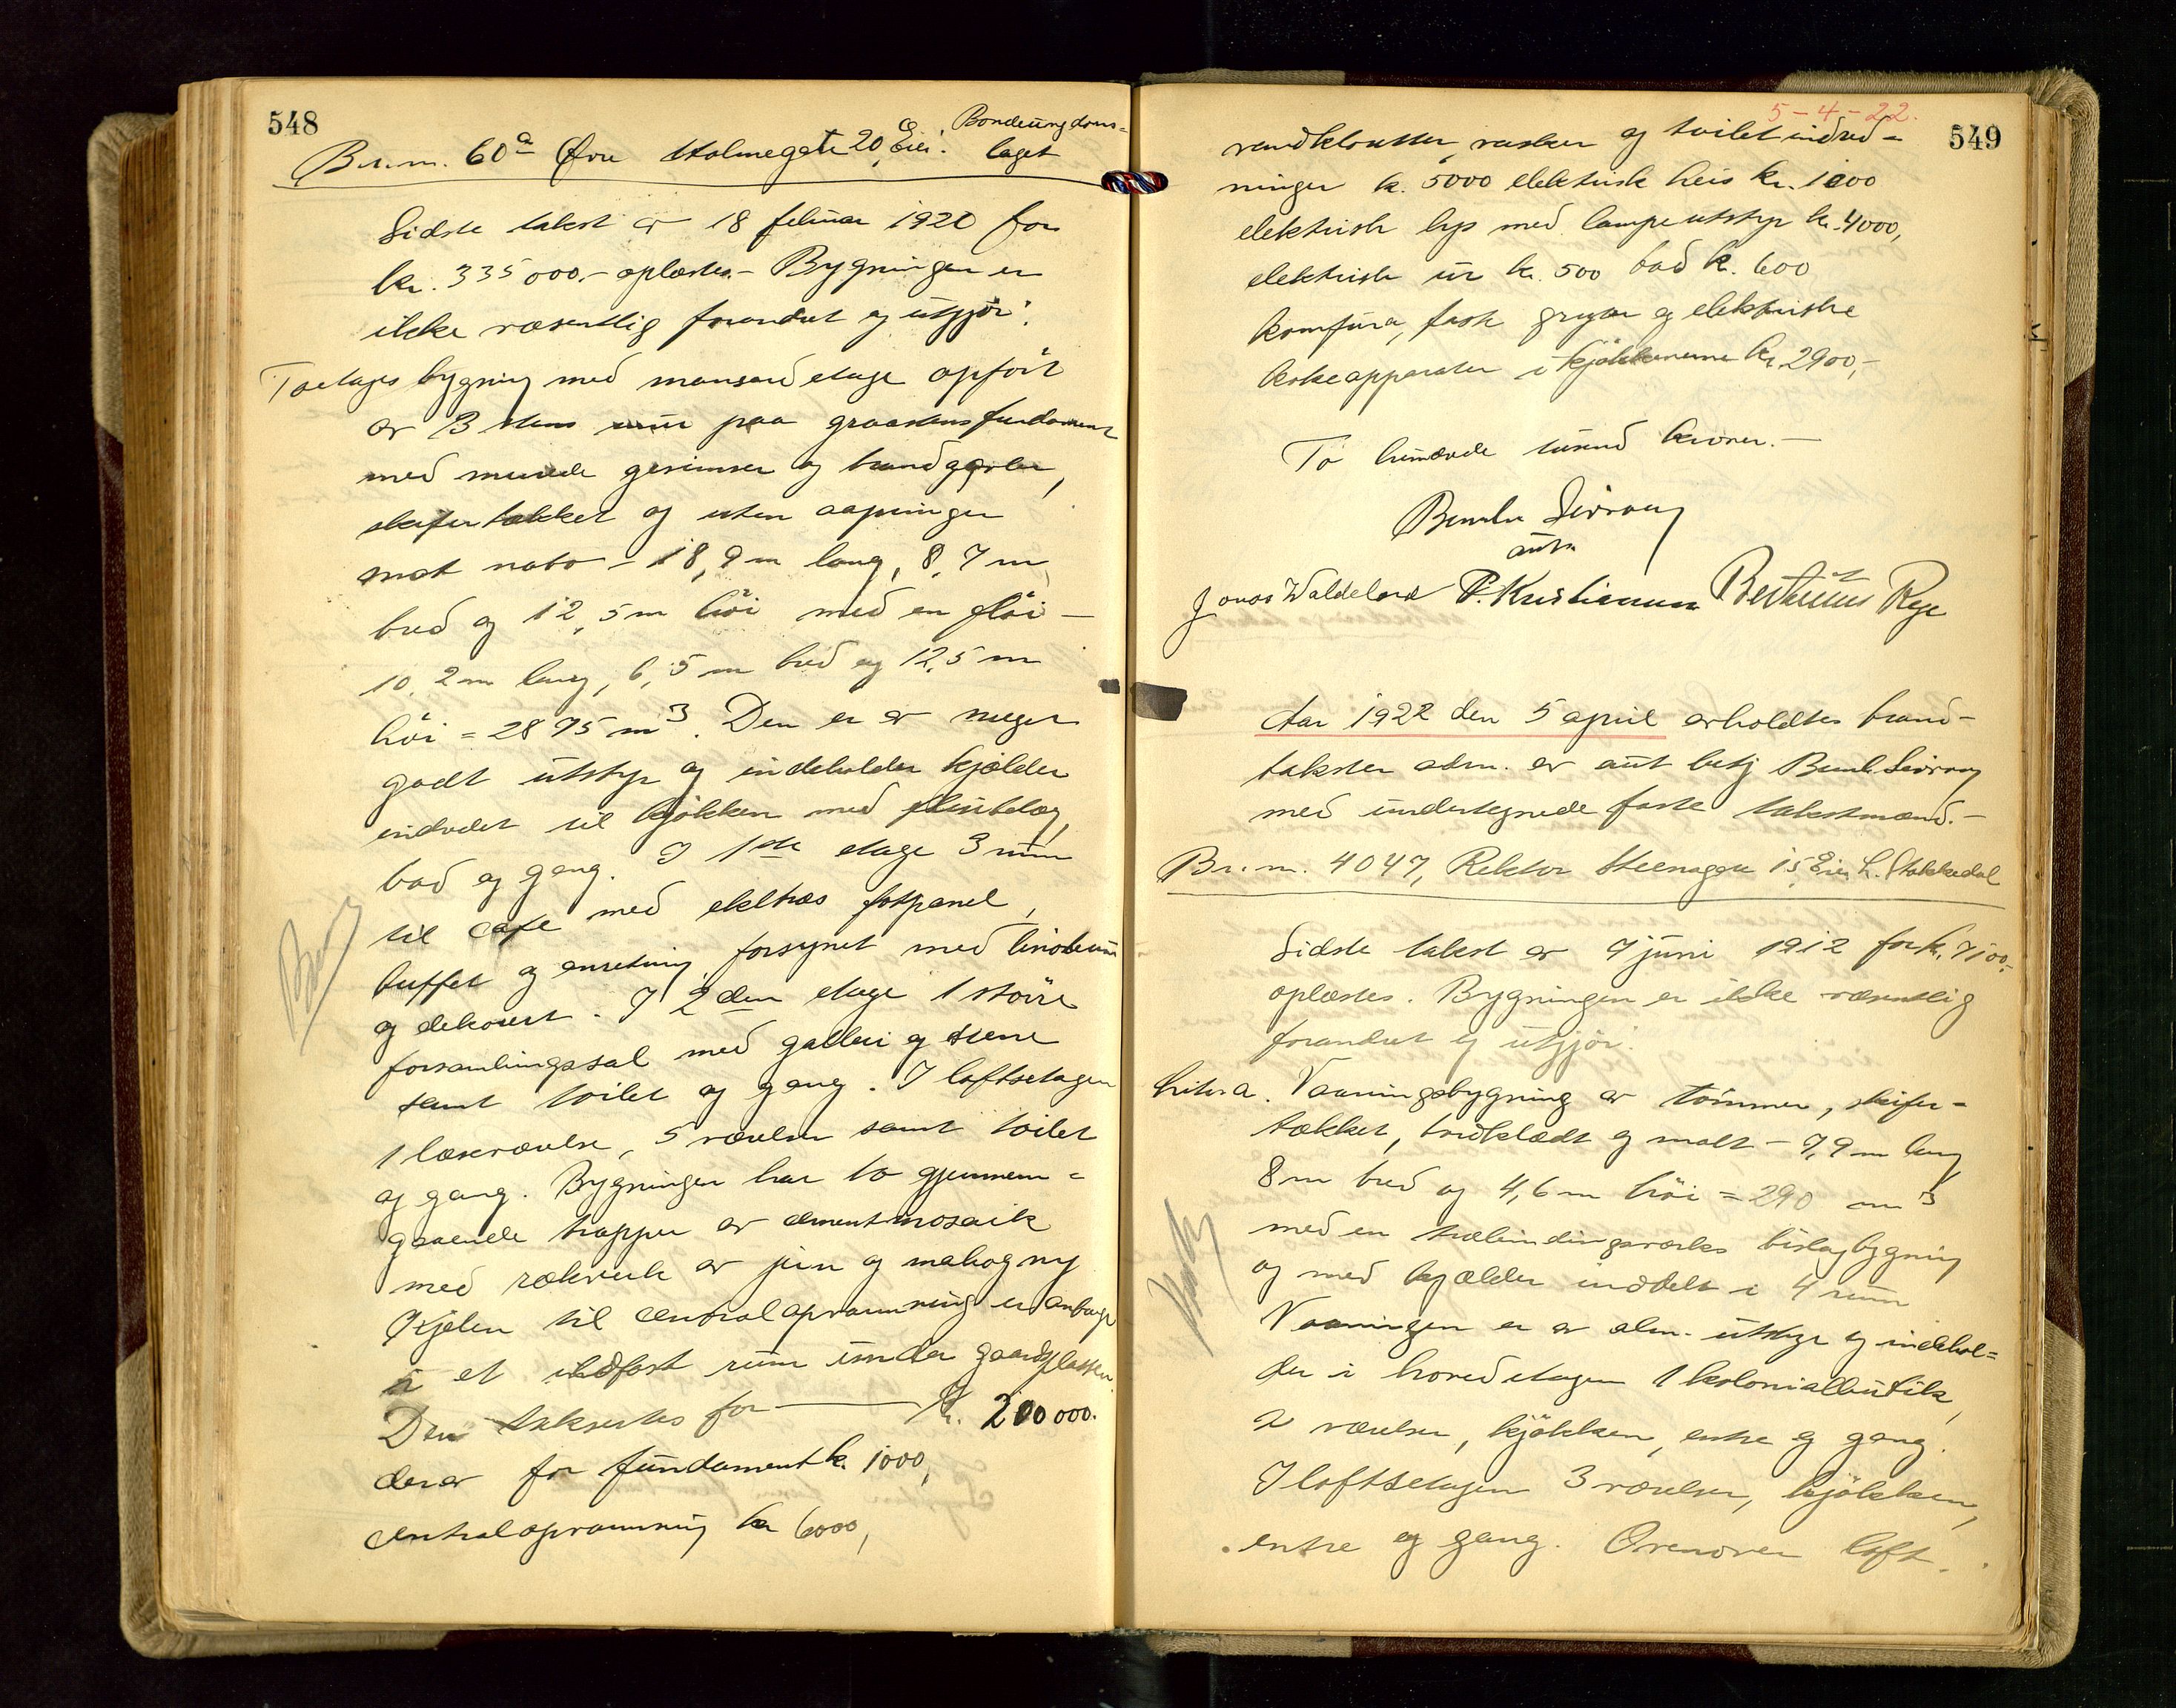 548
Br.m. 60a Øvre Holmegate 20, Eier: Bondeungdoms-
laget
Sidste takst er 18 februar 1920 for
kr. 335000.- oplæstes.- Bygningen er
ikke væsentlig forandret og utgjør:
Toetages bygning med mansardetage opført
av 1/3 stens mur paa graastensfundament
med murede gesimser og brandgavler,
skifertækket og uten aapninger
mot nabo - 18,9 m lang, 8,7 m
bred og 12,5 m høi med en fløi -
10,2 m lang, 6,5 m bred og 12,5 m
høi = 2895 m3. Den er av meget
godt utstyr og indeholder kjælder
indredet til kjøkken med flisebelæg,
bad og gang. I 1ste etage 3 rum
til cafe med eketræs fotpanel,
buffet og anretning, forsynet med linoleum
og dekorert. I 2den etage 1 større
forsamlingssal med galleri og scene
samt toilet og gang. I loftsetagen
1 læseværelse, 5 værelser samt toilet
og gang. Bygningen har to gjennem-
gaaende trapper av cementmosaik
med rækverk av jern og mahogny
Kjelen til centralopvarmning er anbragt
i et ildfast rum under gaardsplassen.
Den takseres for — Kr. 200000.
derav for fundament kr. 1000,
centralopvarming kr 6000,
5-4-22.
549
vandklosetter, vasker og toiletindred-
ninger kr. 5000 elektrisk heis kr. 1000
elektrisk lys med lampeutstyr kr. 4000,
elektrisk ur kr. 500 bad kr. 600
komfura, faste gryter og elektriske
kokeapparater i kjøkkenerne kr. 2900,-
To hundrede tusind kroner.-
autr
Jonas Waldeland P. Kristiansen Berthinus Rege
Aar 1922 den 5 april avholdtes brand-
takster adm. av aut betj Bernh. Sivroy
med undertegnede faste takstmænd.-
Br.m. 4047, Rektor Steensgate 15, Eier L. Stokkedal
Sidste takst er 7 juni 1912 for kr. 7100,-
oplæstes. Bygningen er ikke væsentlig
forandret og utgjør:
Litra a. Vaaningsbygning av tømmer, skifer-
tækket, bordklædt og malt - 7,9 m lang
8 m bred og 4,6 m høi = 290 m3
med en træbindingsverks bislagbygning
og med kjælder inddelt i 4 rum
Vaaningen er av alm. utstyr og indehol-
der i hovedetagen 1 kolonialbutik,
2 værelser, kjøkken, entre og gang.
I loftsetagen 3 værelser, kjøkken,
entre og gang. Ovenover loft.